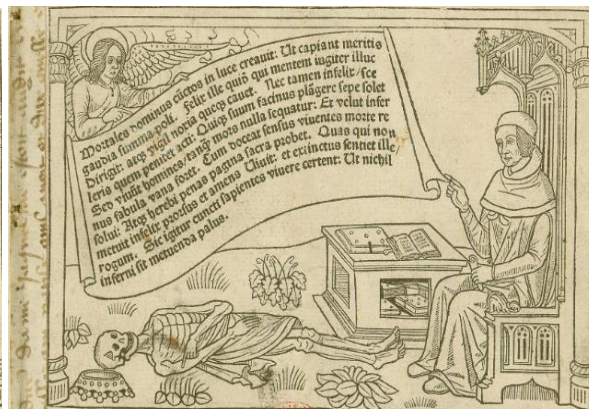 Mortales dominus cūctos in luce creauit: Ut capiant meritis
gaudia summa poli. Felix ille quidē qui mentem iugiter illuc
Dirigit: atq; vigil noxia queq; cauet. Nec tamen infelix / sce
leris quem penitet acti: Quiq; suum facinus plāgere sepe solet
Sed viuūt homines tanq̄ mors nulla sequatur: Et velut infer
nus fabula vana foret. Cum doceat sensus viuentes morte re
solui: Atq; herebi penas pagina sacra probet. Quas qui non
metuit infelix prorsus et amens Viuit: et extinctus sentiet ille
rogum. Sic igitur cuncti sapientes viuere certent: Ut nichil
inferni sit metuenda palus.